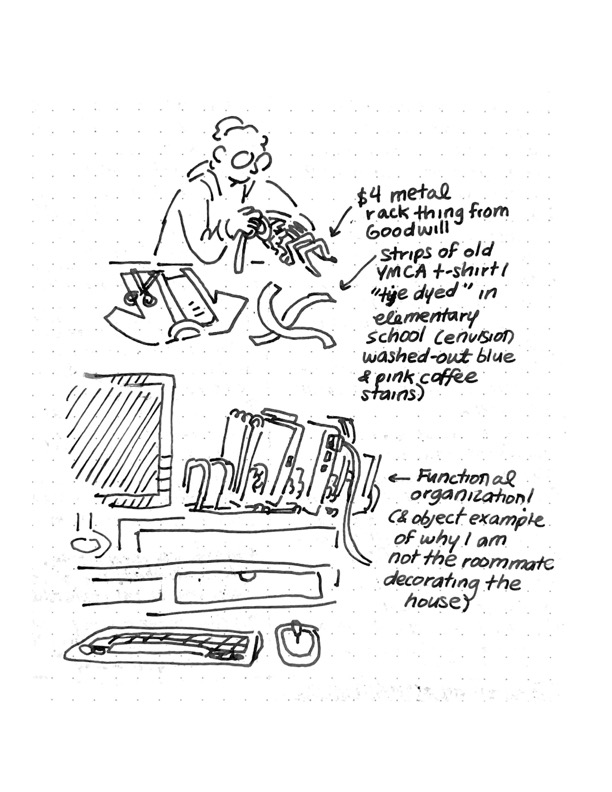 $4 metal
rack thing from
Goodwill
strips of old
YMCA t-shirt I
"tye dyed" in
elementary
school (envision
washed-out blue
& pink coffee
stains)
← Functional
organization!
(& object example
of why I am
not the roommate
decorating the
house)